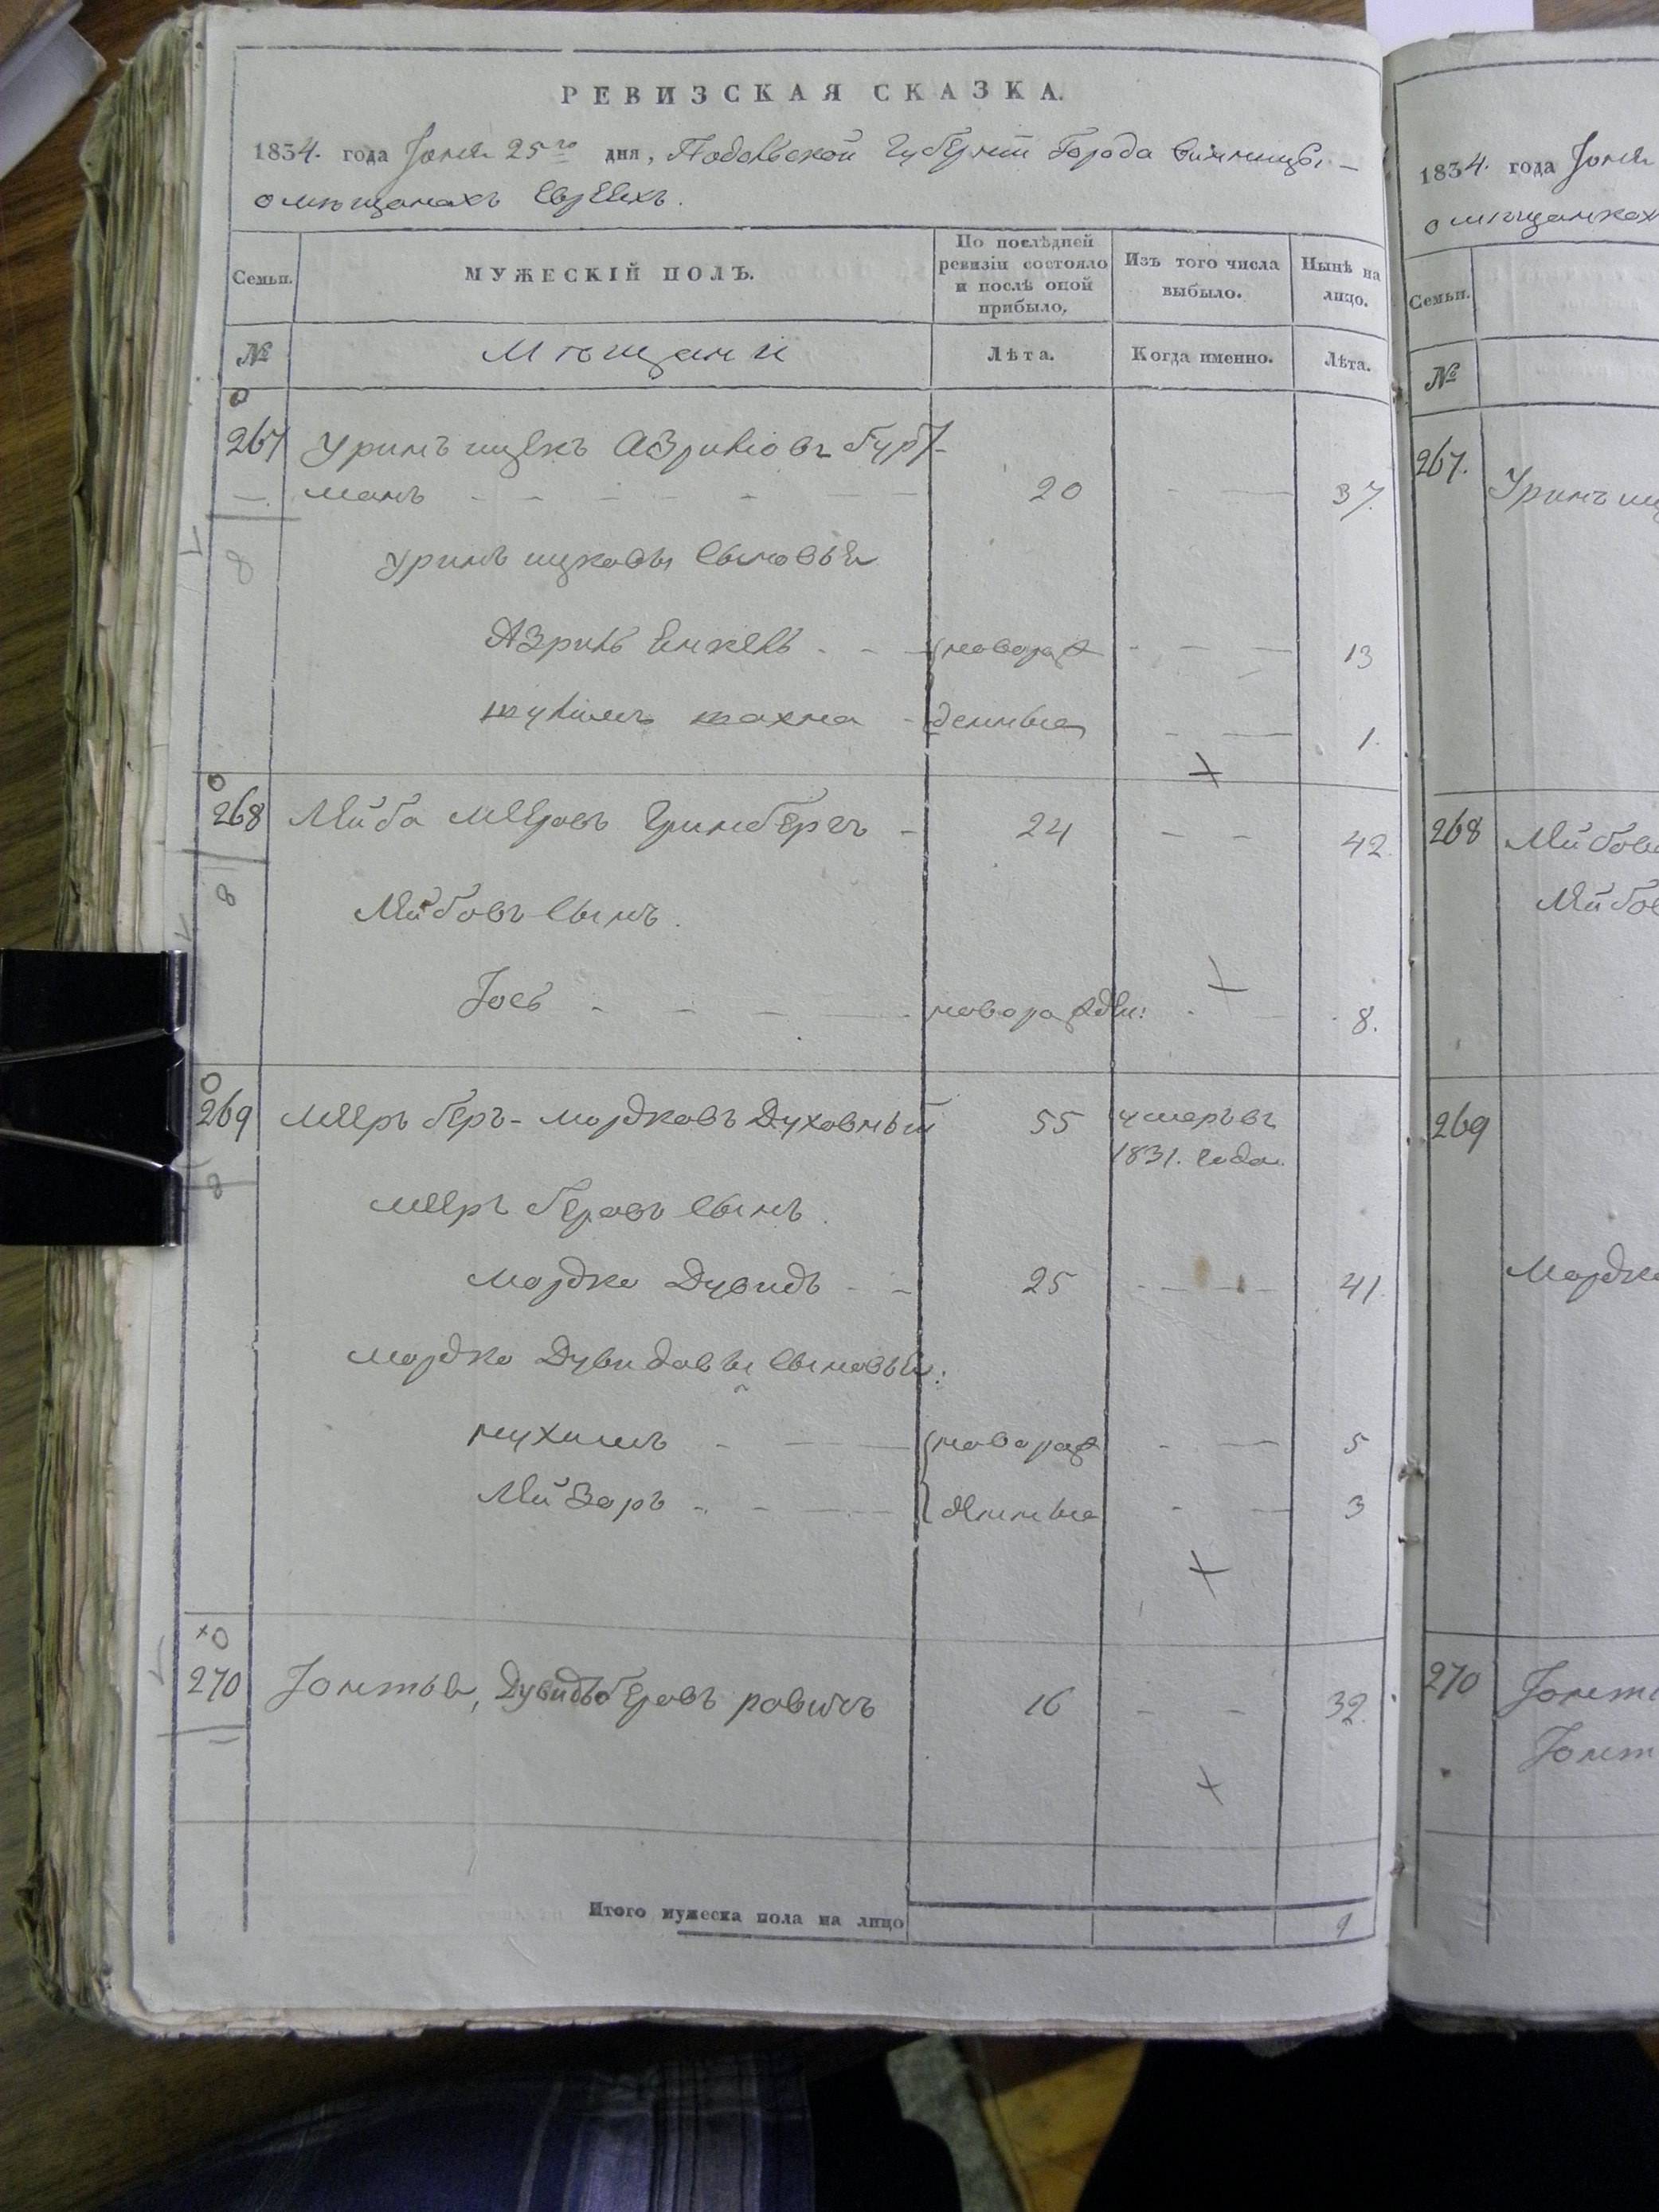 РЕВИЗСКАЯ СКАЗКА.
1834. года Іюня 25го дня, Подольской Губерніи Города Винницы —
о мѣщанахъ Евреяхъ.
Семьи. МУЖЕСКІЙ ПОЛЪ. По послѣдней ревизіи состояло и послѣ оной прибыло. Изъ того числа выбыло. Нынѣ на лицо.
№ Мѣщани Лѣта. Когда именно. Лѣта.
267 Уринъ ицекъ Азриліовъ Гурт-
манъ 20 37.
8 Уринъ ицковы сыновья
Азриль Енкель новорож 13
шулимъ шахна денные 1.
268 Лейба Мееровъ Гринбергъ 24 42.
8 Лейбовъ сынъ.
Іось новорожден: 8.
269 Мееръ беръ-мордковъ Духовный 55 умеръ въ
1831. Года.
8 Мееръ беровъ сынъ.
Мордко Дувидъ 25 41.
Мордко Дувидовы сыновья:
нухимъ новорож 5
Лейзоръ денные 3
270 Іонтья, Дувидъ беровъ равичъ 16 32.
Итого мужеска пола на лицо 9
1834. года Іюня
о мѣщанкахъ
Семьи.
№
267. Уринъ иц
268 Лейбова
Лейбов
269
Мордко
270 Іонт
Іонт